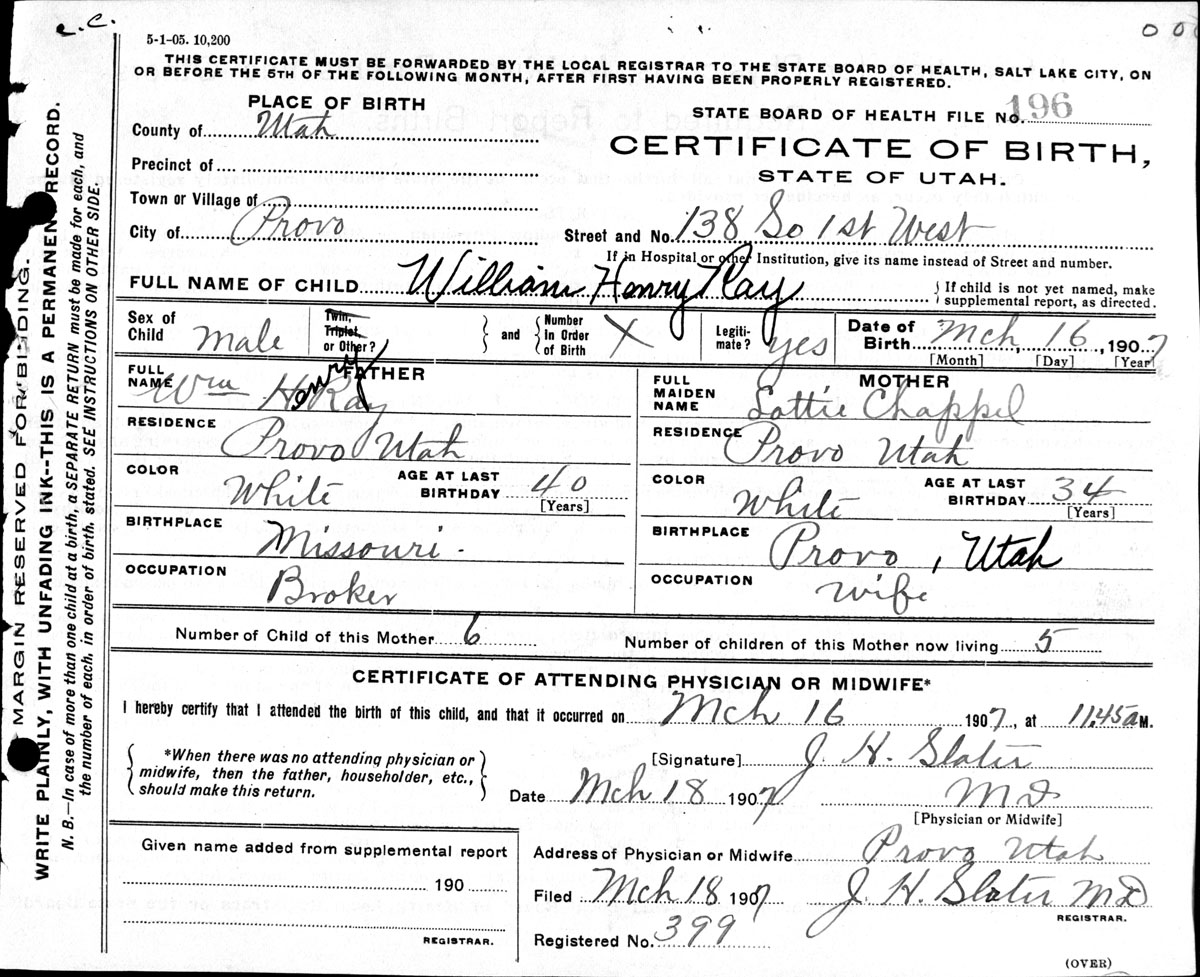 c. c.
5-1-05. 10,200
THIS CERTIFICATE MUST BE FORWARDED BY THE LOCAL REGISTRAR TO THE STATE BOARD OF HEALTH, SALT LAKE CITY, ON
OR BEFORE THE 5TH OF THE FOLLOWING MONTH, AFTER FIRST HAVING BEEN PROPERLY REGISTERED.
PLACE OF BIRTH
STATE BOARD OF HEALTH FILE No. 196
County of Utah
CERTIFICATE OF BIRTH,
Precinct of
STATE OF UTAH.
Town or Village of
City of Provo
Street and No. 138 So 1st West
If in Hospital or other Institution, give its name instead of Street and number.
FULL NAME OF CHILD William Henry Ray
{ If child is not yet named, make
supplemental report, as directed.
Sex of Child Male
Twin, Triplet, or Other?
and
Number In Order of Birth X
Legitimate? yes
Date of Birth Mch 16, 1907
[Month] [Day] [Year]
FATHER
FULL NAME Wm Henry Ray
RESIDENCE Provo Utah
COLOR White
AGE AT LAST BIRTHDAY 40
[Years]
BIRTHPLACE Missouri.
OCCUPATION Broker
MOTHER
FULL MAIDEN NAME Lottie Chappel
RESIDENCE Provo Utah
COLOR White
AGE AT LAST BIRTHDAY 34
[Years]
BIRTHPLACE Provo, Utah
OCCUPATION Wife
Number of Child of this Mother 6
Number of children of this Mother now living 5
CERTIFICATE OF ATTENDING PHYSICIAN OR MIDWIFE*
I hereby certify that I attended the birth of this child, and that it occurred on Mch 16 1907, at 11.45 a M.
{ *When there was no attending physician or
midwife, then the father, householder, etc.,
should make this return. }
[Signature] J. H. Slater
Date Mch 18 1907
MD
[Physician or Midwife]
Given name added from supplemental report
190
REGISTRAR.
Address of Physician or Midwife Provo Utah
Filed Mch 18 1907 J. H. Slater MD
REGISTRAR.
Registered No. 399
(OVER)
MARGIN RESERVED FOR BINDING.
WRITE PLAINLY, WITH UNFADING INK--THIS IS A PERMANENT RECORD.
N. B.—In case of more than one child at a birth, a SEPARATE RETURN must be made for each, and
the number of each, in order of birth, stated. SEE INSTRUCTIONS ON OTHER SIDE.